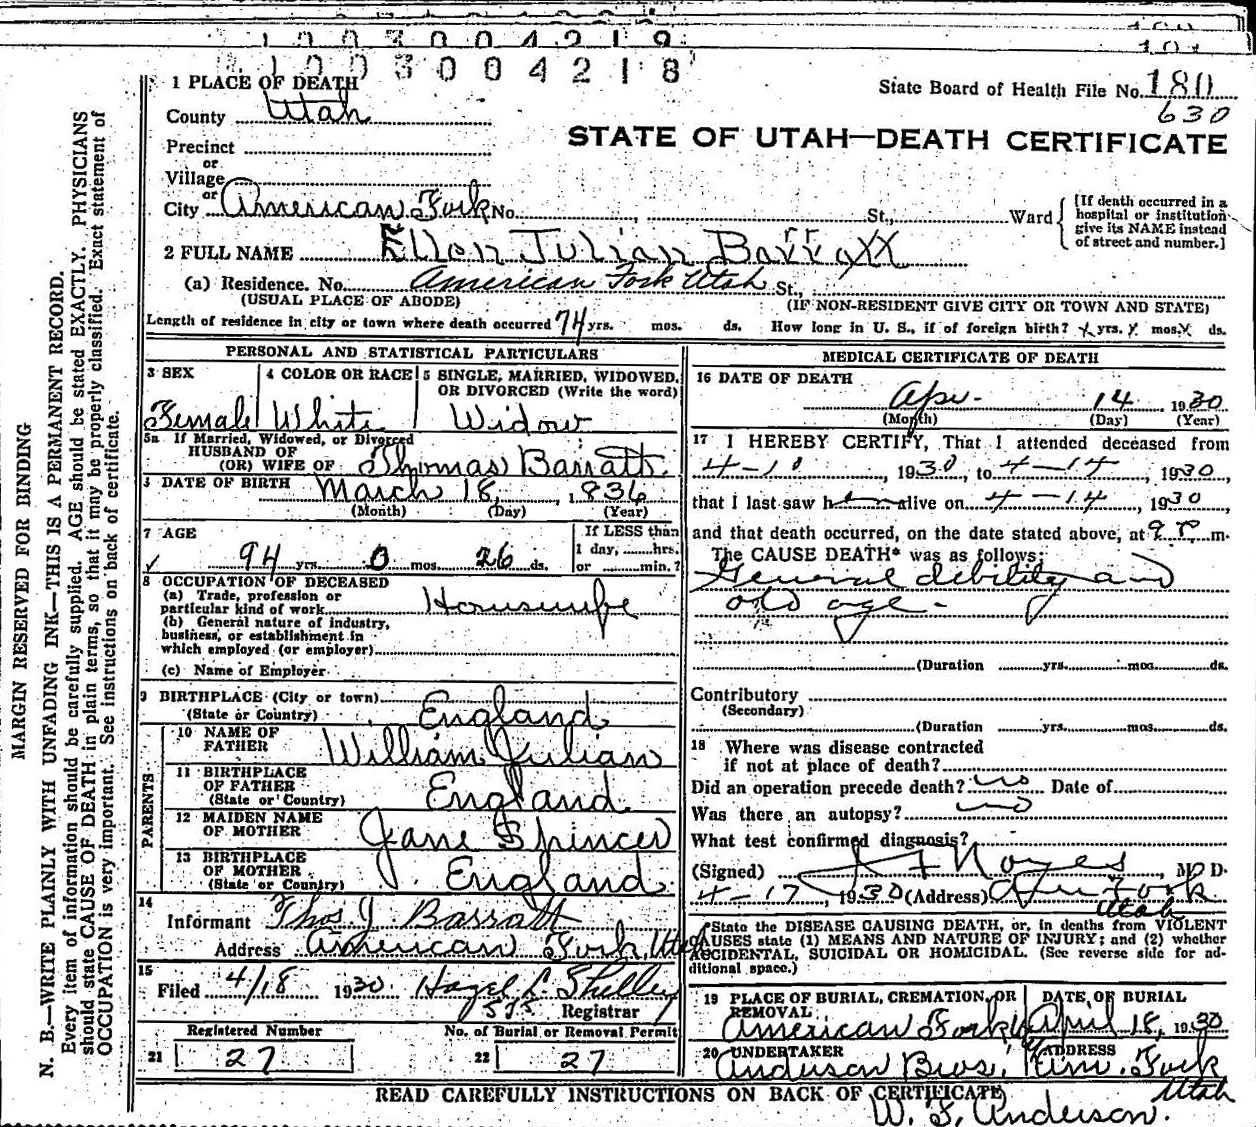 1 0 0 3 0 0 4 2 1 9
1 0 0 3 0 0 4 2 1 8
State Board of Health File No. 180
630
STATE OF UTAH—DEATH CERTIFICATE
1 PLACE OF DEATH
County Utah
Precinct
or
Village
or
City American Fork No. , St., Ward
[If death occurred in a
hospital or institution
give its NAME instead
of street and number.]
2 FULL NAME Ellen Julian Barratt
(a) Residence. No. American Fork Utah St.,
(USUAL PLACE OF ABODE) (IF NON-RESIDENT GIVE CITY OR TOWN AND STATE)
Length of residence in city or town where death occurred 74 yrs. mos. ds. How long in U. S., if of foreign birth? x yrs. x mos. x ds.
PERSONAL AND STATISTICAL PARTICULARS
3 SEX Female
4 COLOR OR RACE White
5 SINGLE, MARRIED, WIDOWED,
OR DIVORCED (Write the word)
Widow
5a If Married, Widowed, or Divorced
HUSBAND OF
(OR) WIFE OF Thomas Barratt
DATE OF BIRTH March 18, 1836
(Month) (Day) (Year)
7 AGE 94 yrs. 0 mos. 26 ds.
If LESS than
1 day, hrs.
or min.?
8 OCCUPATION OF DECEASED
(a) Trade, profession or
particular kind of work Housewife
(b) General nature of industry,
business, or establishment in
which employed (or employer)
(c) Name of Employer
9 BIRTHPLACE (City or town)
(State or Country) England
PARENTS
10 NAME OF
FATHER William Julian
11 BIRTHPLACE
OF FATHER
(State or Country) England
12 MAIDEN NAME
OF MOTHER Jane Spincer
13 BIRTHPLACE
OF MOTHER
(State or Country) England
14
Informant Thos. J. Barratt
Address American Fork Utah
15
Filed 4/18 1930 Hazel L. Shelley
575 Registrar
Registered Number No. of Burial or Removal Permit
21 27 22 27
MEDICAL CERTIFICATE OF DEATH
16 DATE OF DEATH
Apr. 14 1930
(Month) (Day) (Year)
17 I HEREBY CERTIFY, That I attended deceased from
4-10, 1930, to 4-14, 1930,
that I last saw her alive on 4-14, 1930,
and that death occurred, on the date stated above, at 9 P. m.
The CAUSE DEATH* was as follows:
General debility and
old age.
(Duration yrs. mos. ds.
Contributory
(Secondary)
(Duration yrs. mos. ds.
18 Where was disease contracted
if not at place of death?
Did an operation precede death? no Date of
Was there an autopsy? no
What test confirmed diagnosis?
(Signed) Noyes, M D.
4-17, 1930 (Address) Am Fork
Utah
*State the DISEASE CAUSING DEATH, or, in deaths from VIOLENT
CAUSES state (1) MEANS AND NATURE OF INJURY; and (2) whether
ACCIDENTAL, SUICIDAL OR HOMICIDAL. (See reverse side for ad-
ditional space.)
19 PLACE OF BURIAL, CREMATION, OR
REMOVAL
American Fork
DATE OF BURIAL
April 18, 1930
20 UNDERTAKER
Anderson Bros.
ADDRESS
Am. Fork
Utah
W. F. Anderson.
READ CAREFULLY INSTRUCTIONS ON BACK OF CERTIFICATE
MARGIN RESERVED FOR BINDING
N. B.—WRITE PLAINLY WITH UNFADING INK—THIS IS A PERMANENT RECORD.
Every item of information should be carefully supplied. AGE should be stated EXACTLY. PHYSICIANS
should state CAUSE OF DEATH in plain terms, so that it may be properly classified. Exact statement of
OCCUPATION is very important. See instructions on back of certificate.